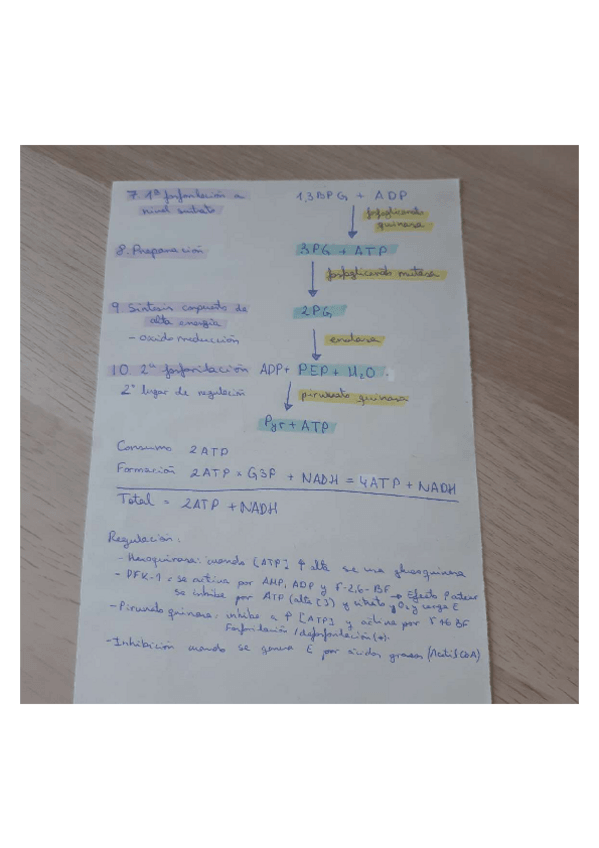 7. 1ª fosforilación a nivel sustrato
1,3BPG + ADP
fosfoglicerato quinasa
8. Preparación
3PG + ATP
fosfoglicerato mutasa
9 Síntesis compuesto de alta energía
- Oxido reducción
2PG
enolasa
10. 2ª fosforilación
2º lugar de regulación
ADP + PEP + H2O.
piruvato quinasa
Pyr + ATP
Consumo 2ATP
Formación 2ATP x G3P + NADH = 4ATP + NADH
Total = 2ATP + NADH
Regulación:
- Hexoquinasa: cuando [ATP] ↑ alta se usa glucoquinasa
- PFK-1 = se activa por AMP, ADP y F-2,6-BF → Efecto Pasteur
se inhibe por ATP (alta [ ]) y citrato y O2 y carga E
- Piruvato quinasa: inhibe a ↑ [ATP] y activa por F1,6BF
Fosforilación / desfosforilación (+).
- Inhibición cuando se genera E por ácidos grasos (Acetil CoA)